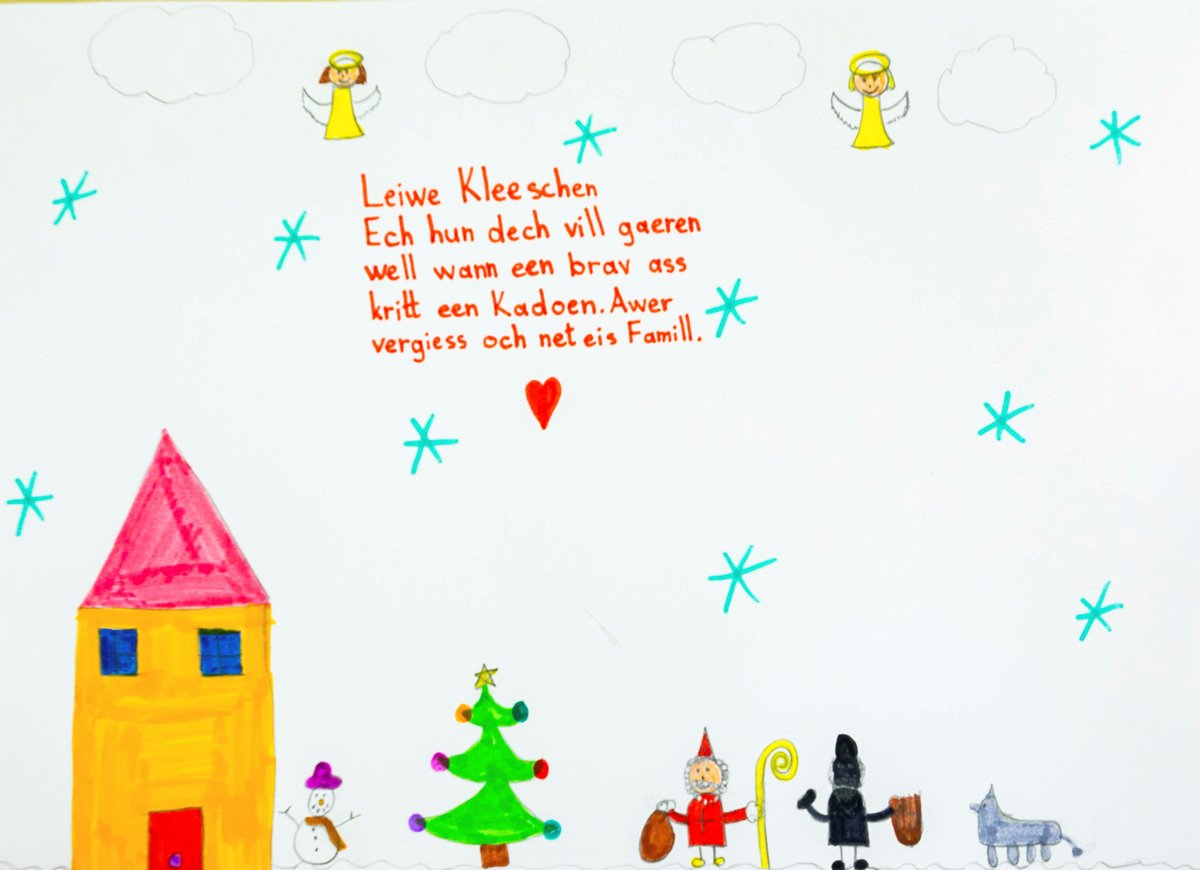 Leiwe Kleeschen
Ech hun dech vill gaeren
well wann een brav ass
kritt een Kadoen. Awer
vergiess och net eis Famill.